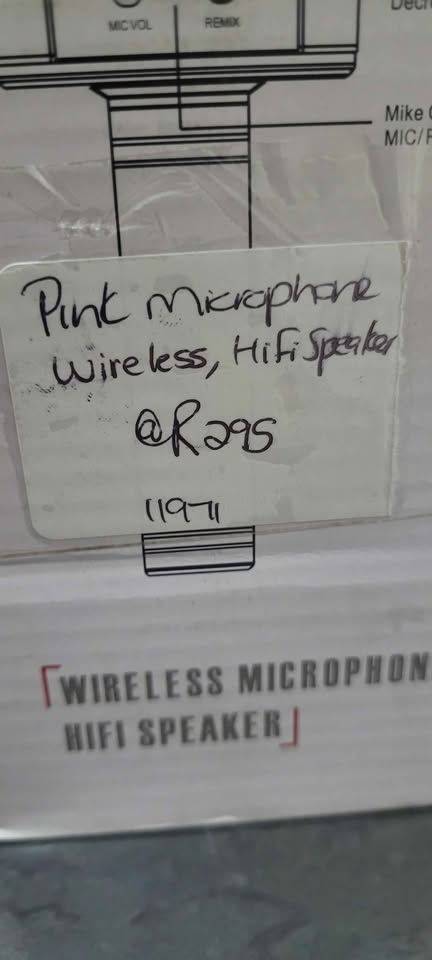 MIC VOL REMIX
Mike
MIC/
Pink Microphone
Wireless, HiFi Speaker
@R295
11971
「WIRELESS MICROPHON
HIFI SPEAKER」